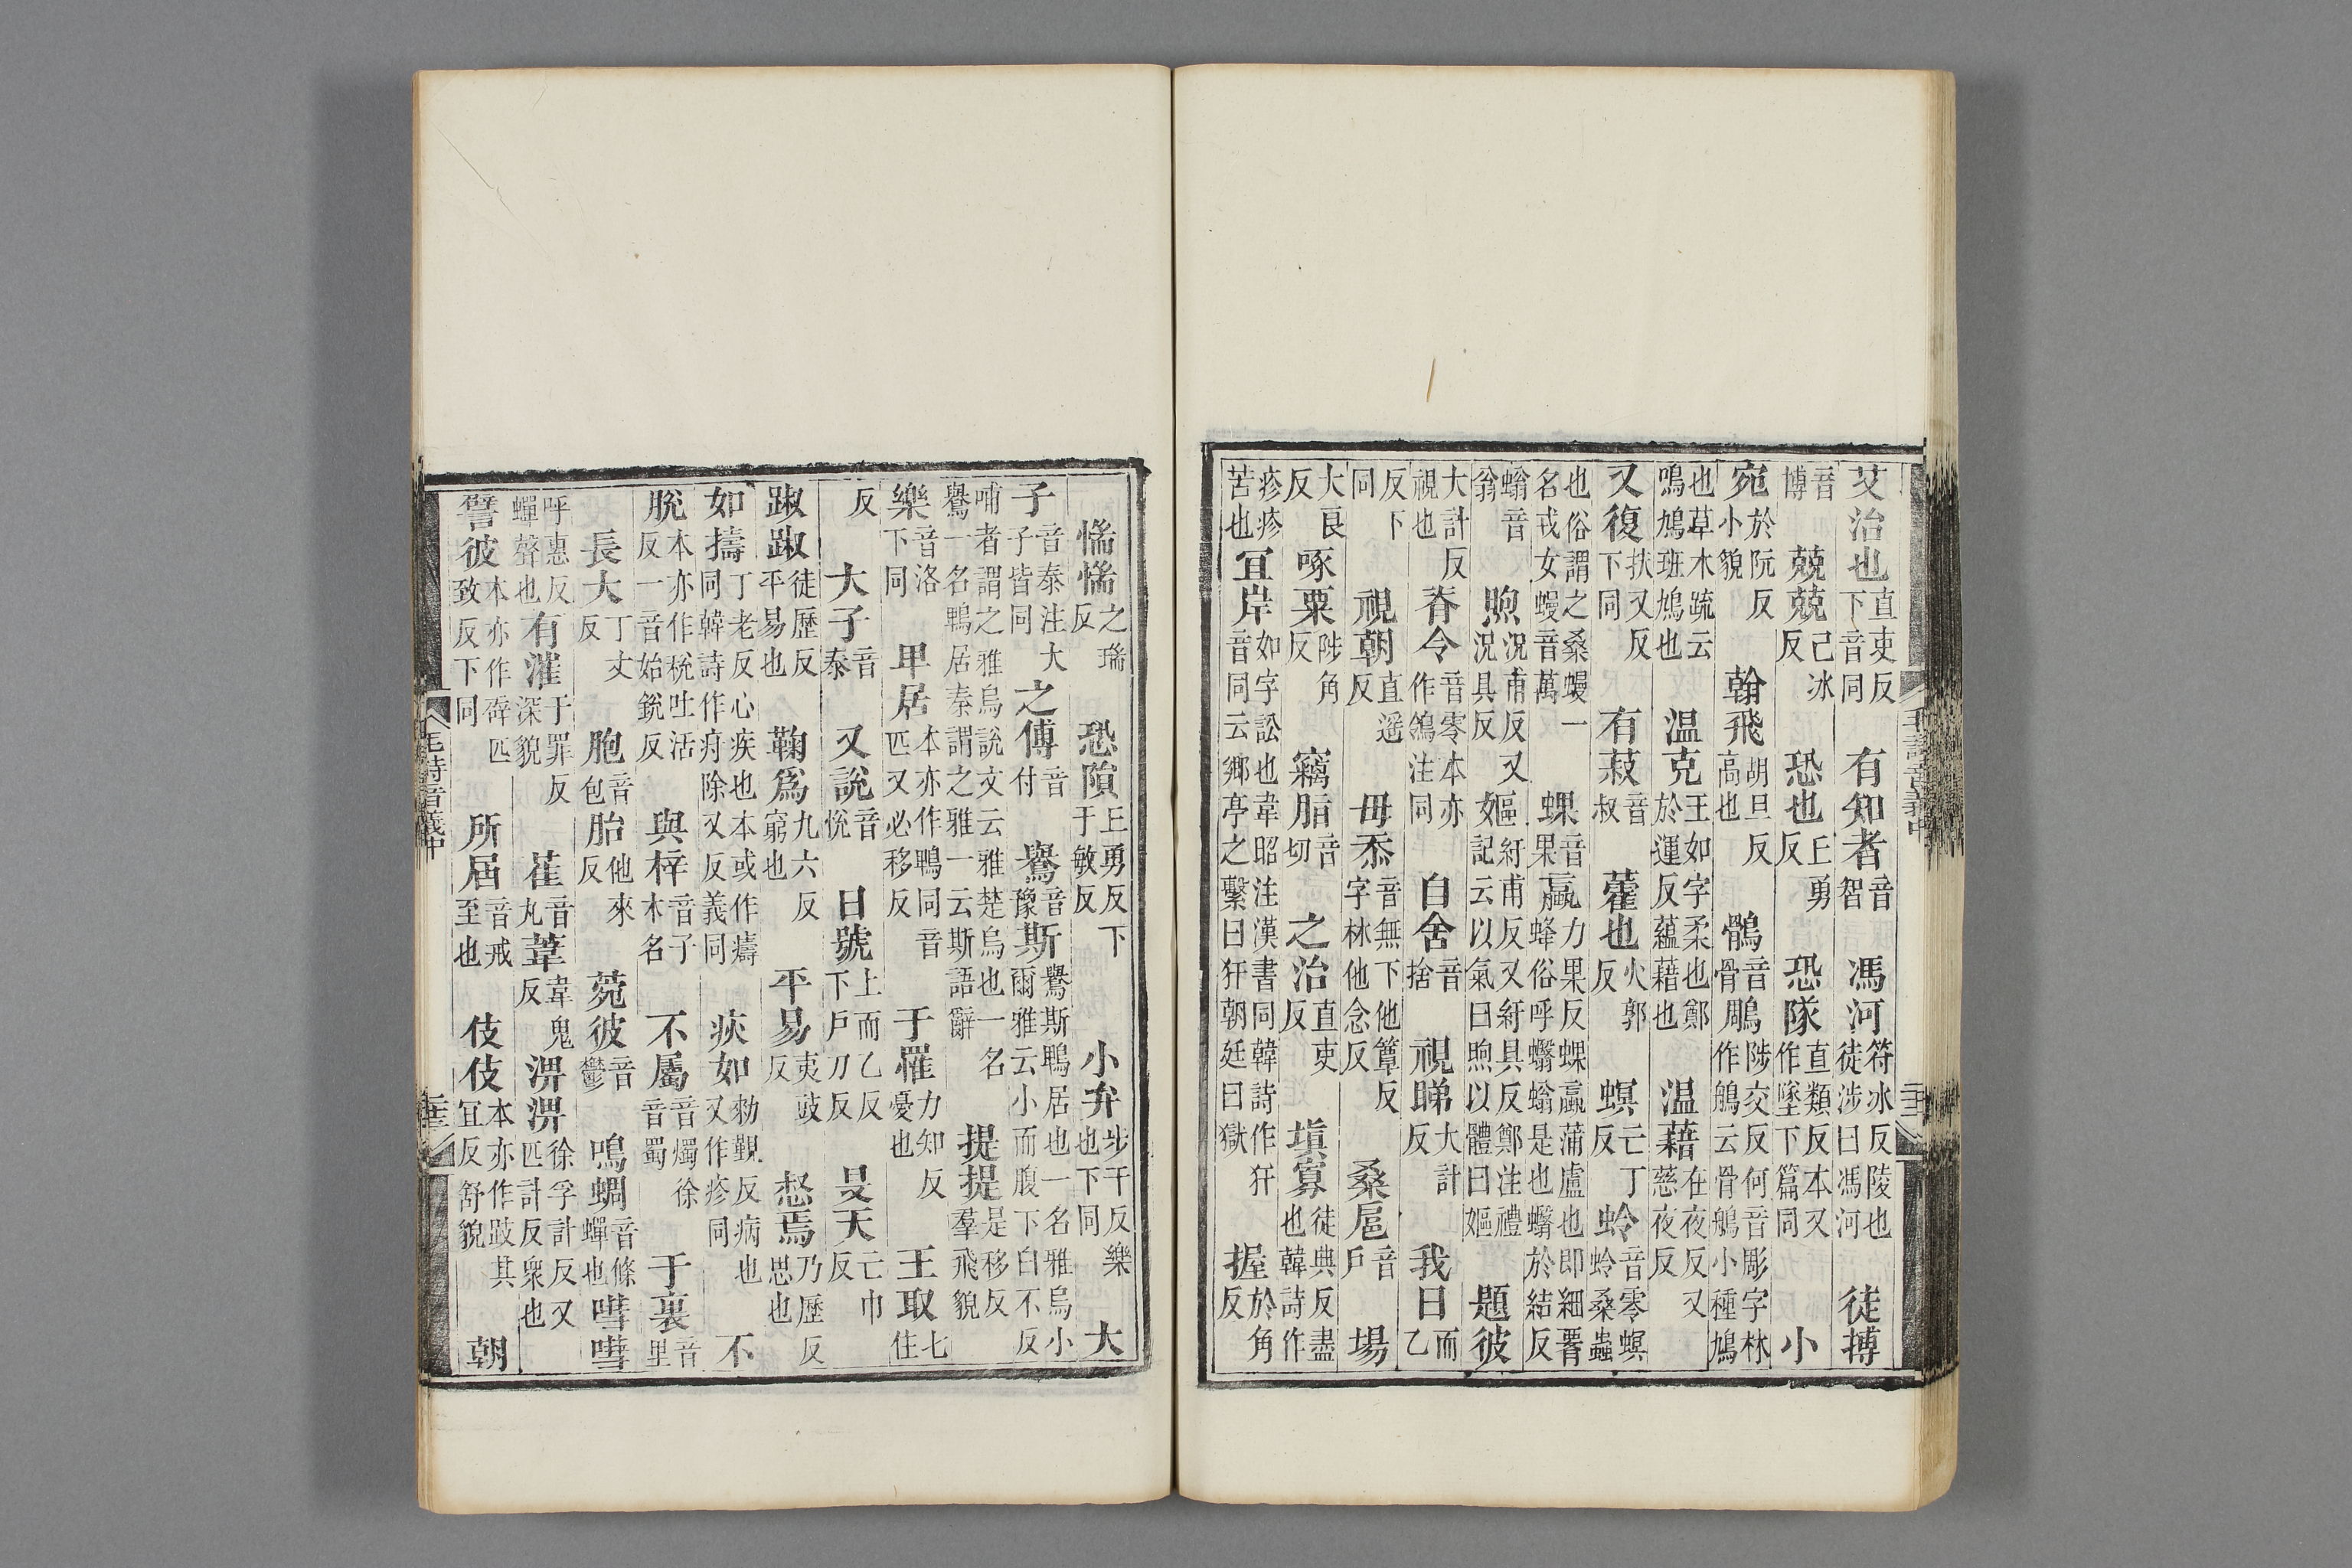 艾治也直吏反下音同有知者音智馮河符冰反陵也徒涉曰馮河徒搏
音博兢兢己冰反恐也丘勇反恐隊直類反本又作墜下篇同小
宛於阮反小貌翰飛胡旦反高也鶻音骨鵰陟交反何音彫字林作鵃云骨鵃小種鳩
也草木疏云鳴鳩班鳩也温克王如字柔也鄭於運反蘊藉也温藉在夜反又慈夜反
又復扶又反下同有菽音叔藿也火郭反螟亡丁反蛉音零螟蛉桑蟲
也俗謂之桑蟃一名戎女蟃音萬蜾音果蠃力果反蜾蠃蒲盧也即細䈥蜂俗呼蠮螉是也蠮於結反
螉音翁煦況甫反又況具反嫗紆甫反又紆具反鄭注禮記云以氣曰煦以體曰嫗題彼
大計反視也脊令音零本亦作鴒注同自舍音捨視睇大計反我日而乙
反下同視朝直遥反毋忝音無下他簟反字林他念反桑扈音户場
大良反啄粟陟角反竊脂音切之治直吏反填寡徒典反盡也韓詩作
疹疹苦也宜岸如字訟也韋昭注漢書同韓詩作犴音同云鄉亭之繫曰犴朝廷曰獄握於角反
毛詩音義中
惴惴之瑞反恐隕丘勇反下于敏反小弁步干反樂也下同大
子音泰注大子皆同之傅音付鸒音豫斯鸒斯鵯居也一名雅烏小爾雅云小而腹下白不反
哺者謂之雅烏說文云雅楚烏也一名鸒一名鵯居秦謂之雅一云斯語辭提提是移反羣飛貌
樂音洛下同卑居本亦作鵯同音匹又必移反于罹力知反憂也王取七住
反大子音泰又說音悅日號上而乙反下户刀反旻天亡巾反
踧踧徒歷反平易也鞫爲九六反窮也平易夷豉反惄焉乃歷反思也
如擣丁老反心疾也本或作𤻮同韓詩作疛除又反義同疢如勑覲反病也又作疹同不
脫本亦作稅吐活反一音始銳反與梓音子木名不屬音燭徐音蜀于裏音里
長大丁丈反胞音包胎他來反菀彼音鬱鳴蜩音條蟬也嘒嘒
呼惠反蟬聲也有漼于罪反深貌萑音丸葦韋鬼反淠淠徐孚計反又匹計反衆也
譬彼本亦作辟匹致反下同所屆音戒至也伎伎本亦作跂其宜反舒貌朝
毛詩音義中